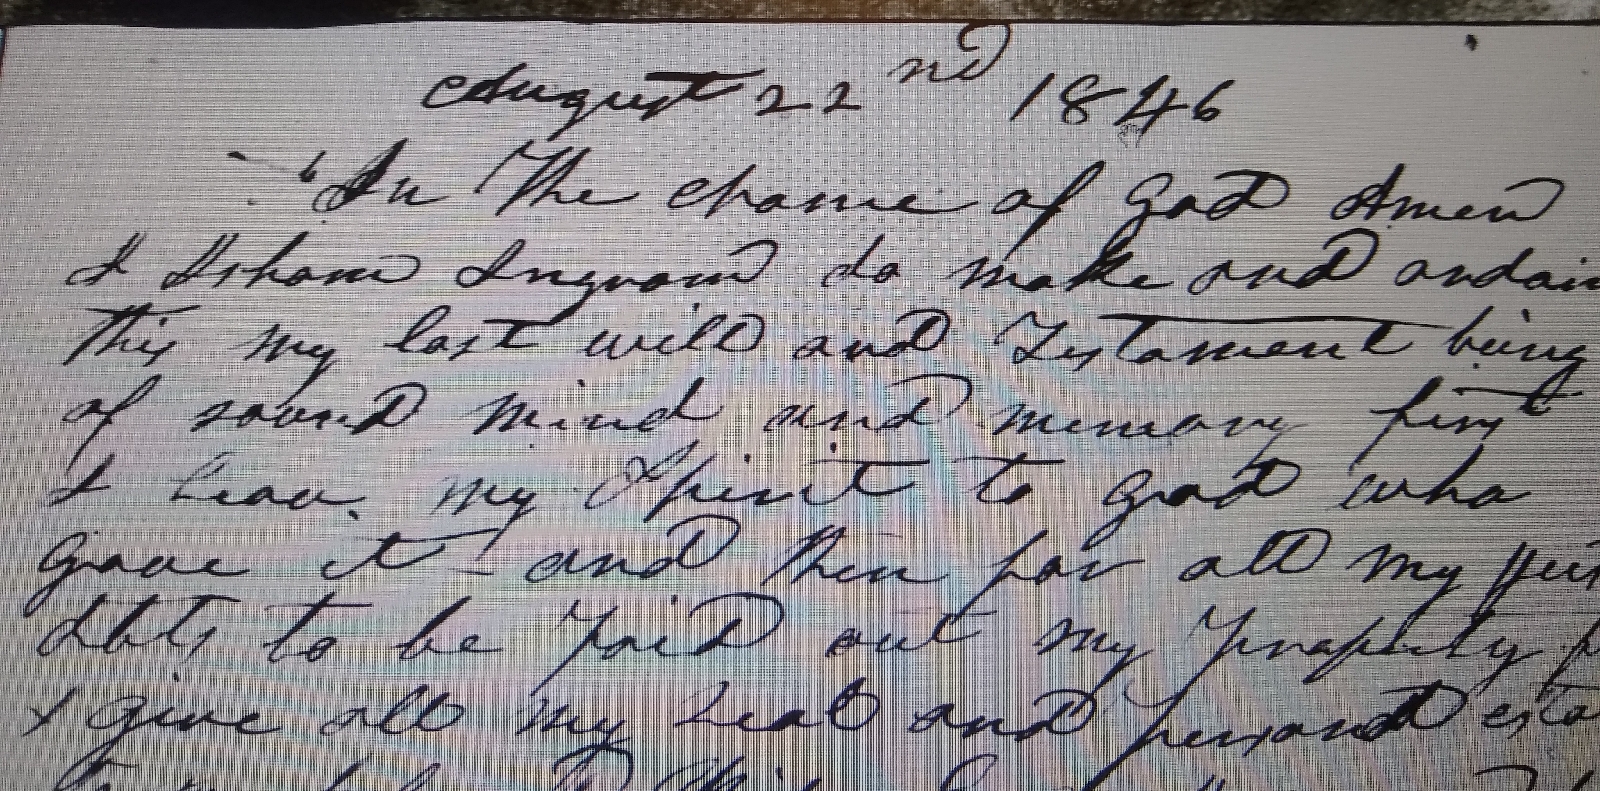 August 22nd 1846
In the chame of god Amen
I Isham Ingram do make and ordain
this my last will and Testament being
of sound mind and memory first
I leave my Spirit to god who
gave it and then for all my just
debts to be paid out my property
I give all my Real and personal esta